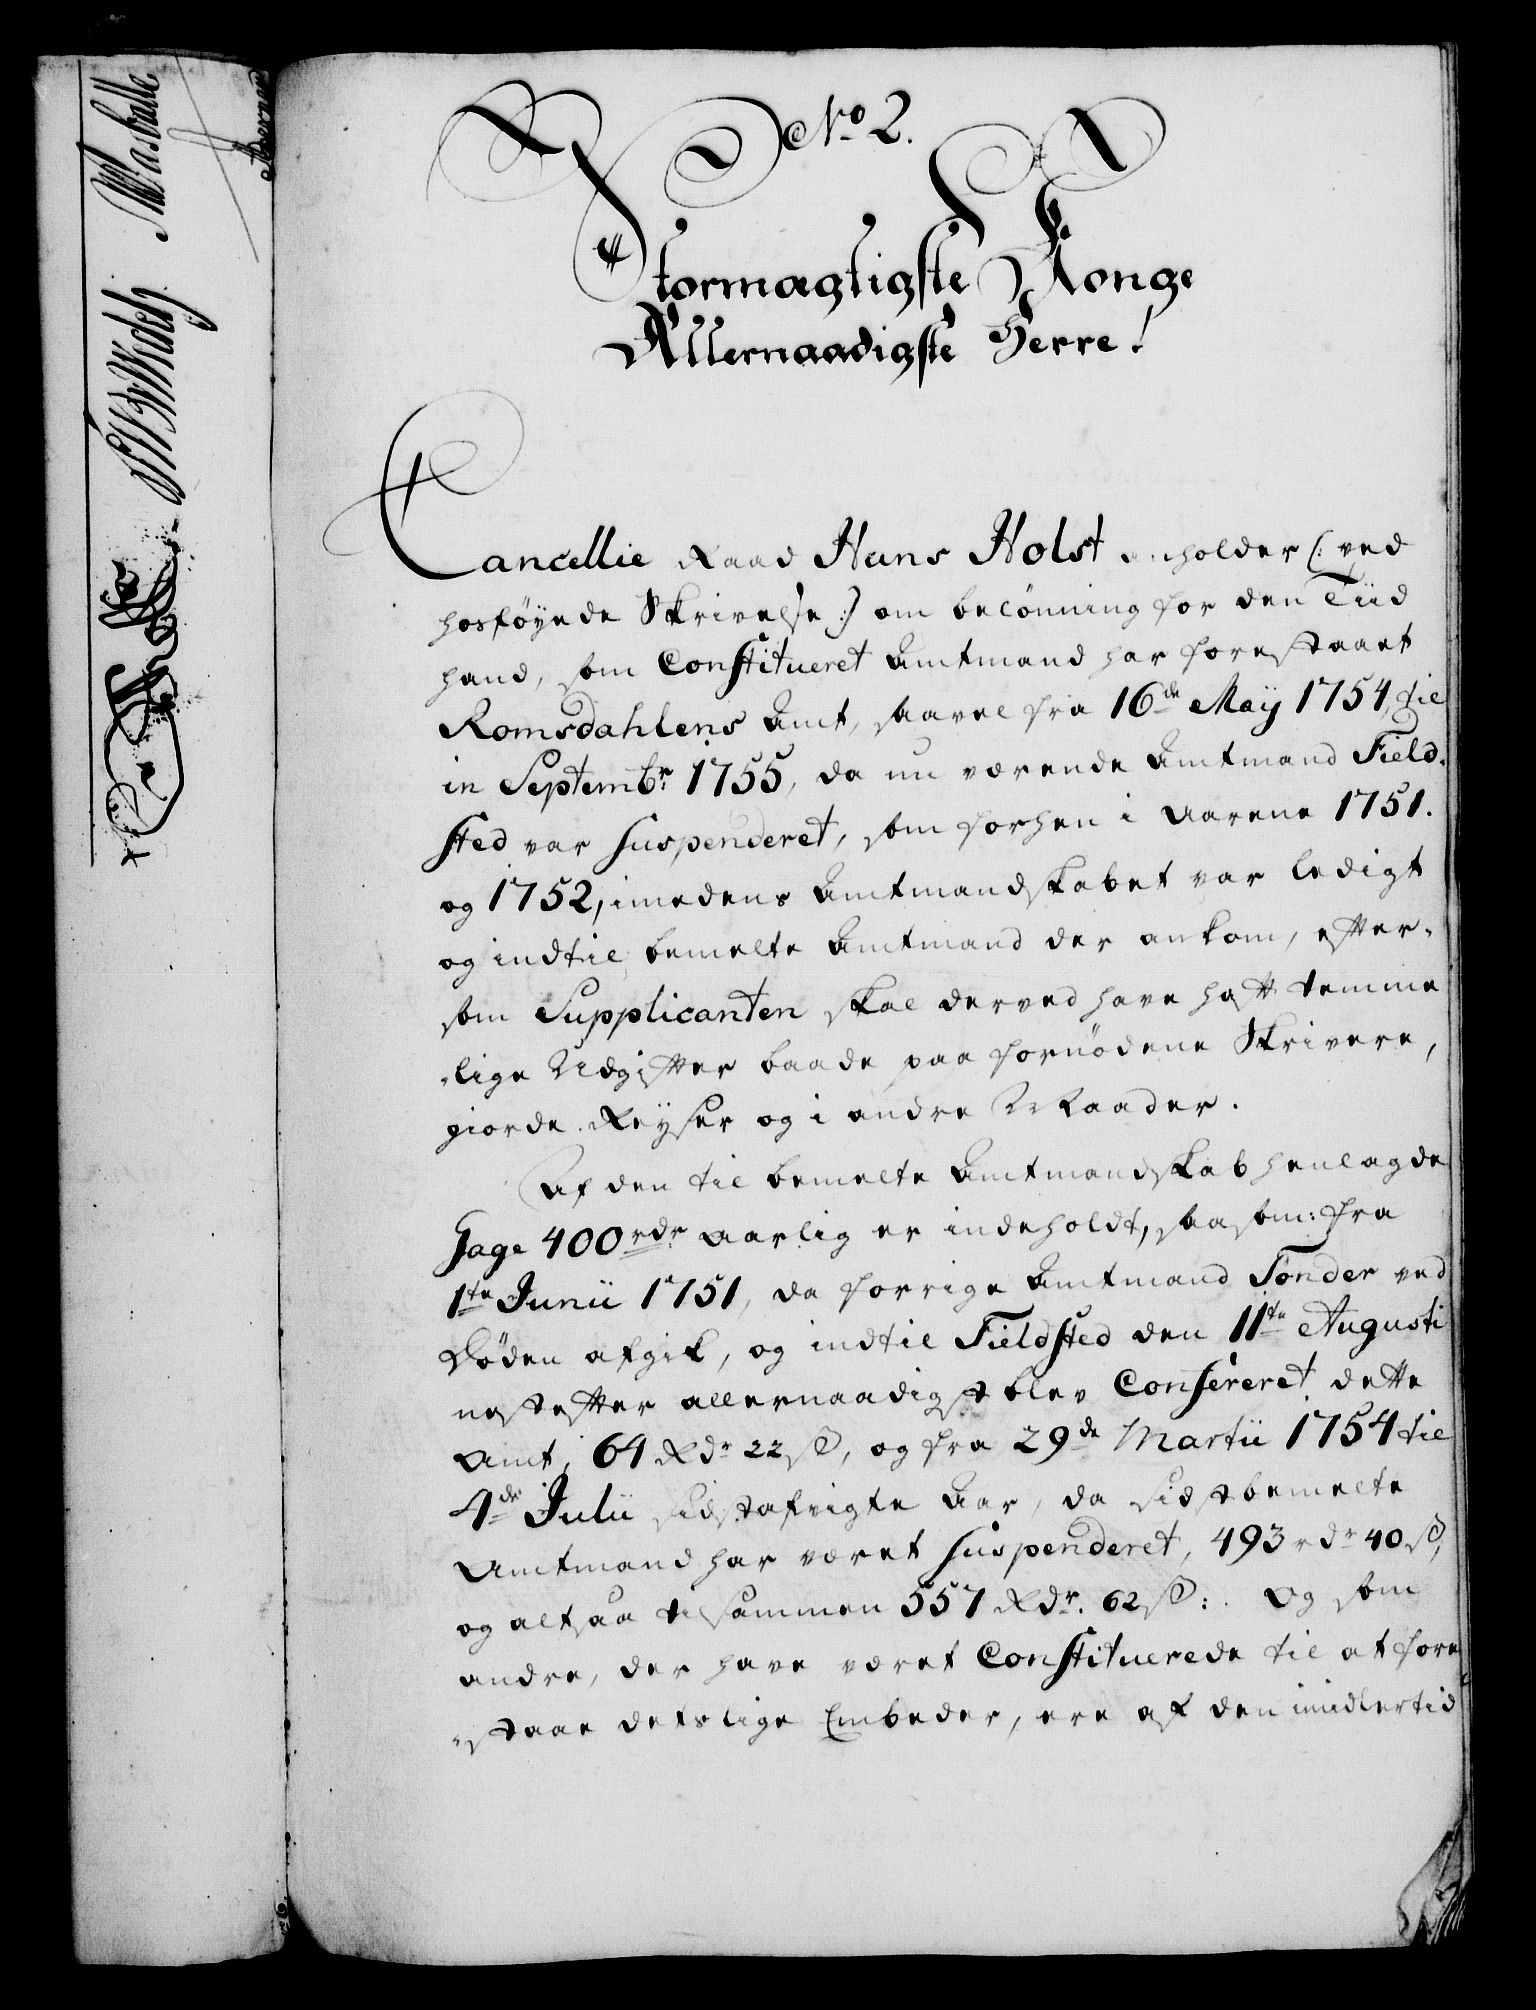 No 2.
Stormægtigste Konge
Allernaadigste Herre!
Cancellie Raad Hans Holst anholder (: ved
hosføyede Skrivelse :) om belønning for den Tiid
hand, som Constitueret Amtmand har forestaaet
Romsdahlens Amt, saavel fra 16de Maij 1754, til
in Septembr 1755, da nu værende Amtmand Field-
sted var suspenderet, som forhen i Aarene 1751.
og 1752, imedens Amtmandskabet var ledigt
og indtil bemelte Amtmand der ankom, efter-
som Supplicanten skal derved have haft temme
-lige Udgifter baade paa fornødene Skrivere,
giorde Reyser og i andre Maader.
Af den til bemelte Amtmandskab henlagde
Gage 400 rdr aarlig er indeholdt, saasom: fra
1te Junii 1751, da forrige Amtmand Tønder ved
Døden afgik, og indtil Fieldsted den 11te Augusti
nestefter allernaadigst blev Confereret dette
Amt, 64 Rdr 22 s, og fra 29de Martii 1754 til
4de Julii sidstafvigte Aar, da sidstbemelte
Amtmand har været suspenderet, 493 rdr 40 s,
og altsaa tilsammen 557 Rdr. 62 s: Og som
andre, der have været Constituerede til at fore
-staae deslige Embeder, ere af den imidlertid